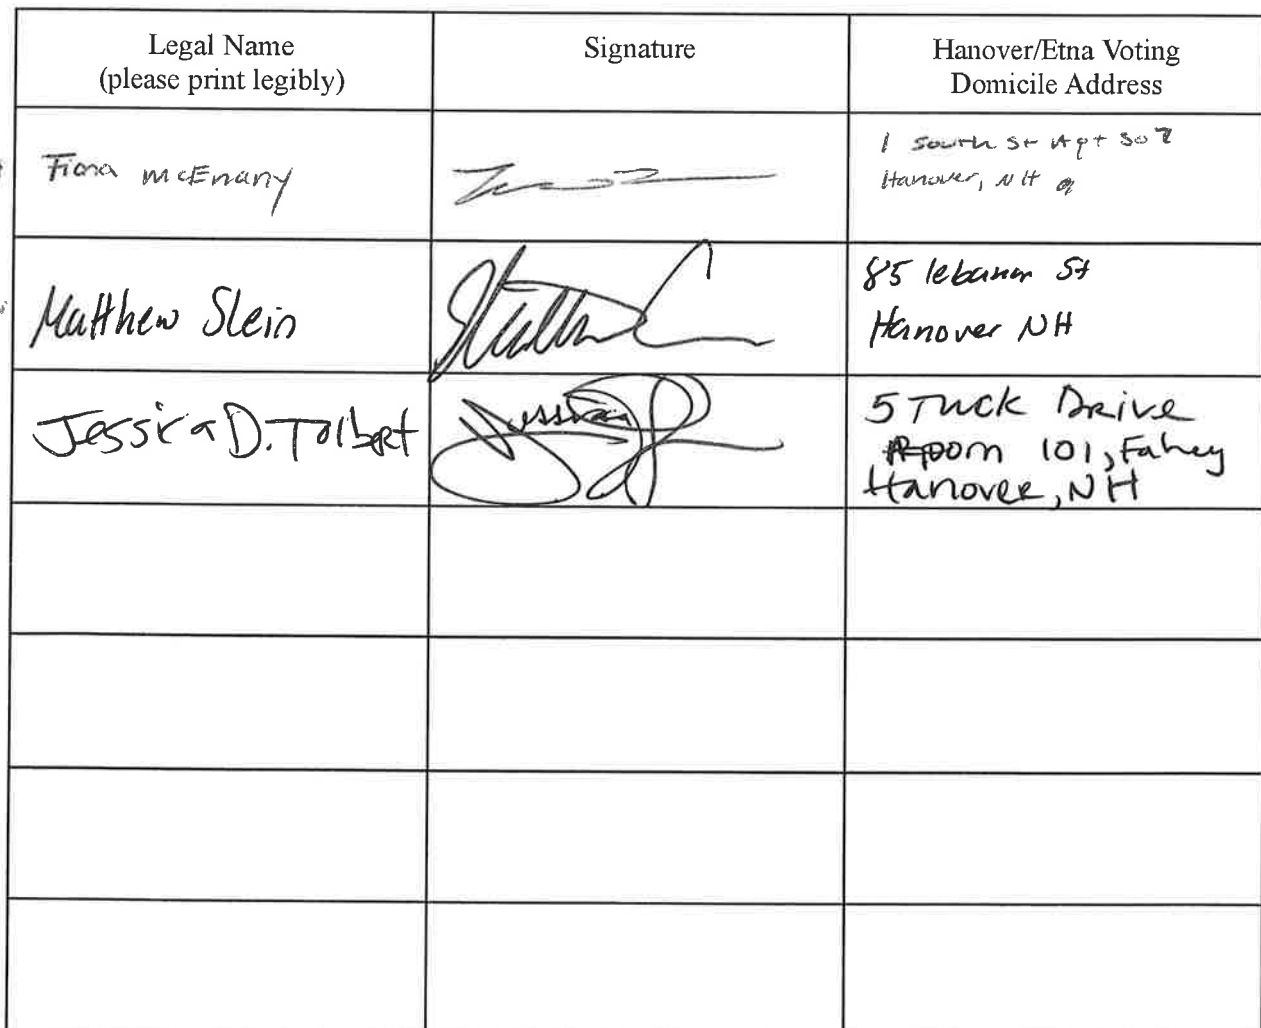 Legal Name
(please print legibly)
Signature
Hanover/Etna Voting
Domicile Address
Fiona McEnany
1 South St Apt 507
Hanover, NH
Matthew Slein
85 lebanon St
Hanover NH
Jessica D. Tolbert
Jessica
5 Tuck Drive
Room 101, Fahey
Hanover, NH